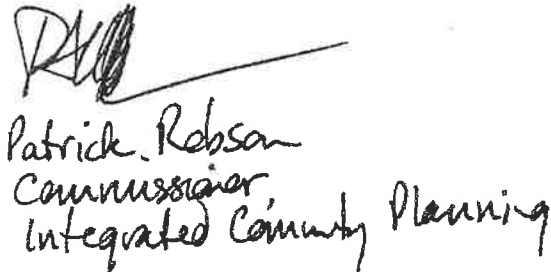 Patrick Robson
Commissioner
Integrated Community Planning